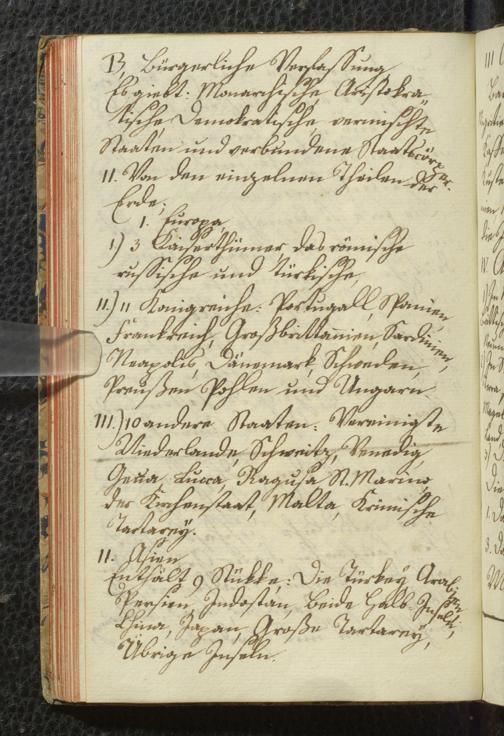 B, Bürgerliche Verfassung
Es giebt: Monarchische Aristokra„
tische Democratische vermischte
Staaten und verbundene Staatscörper.
II. Von den einzelnen Theilen der
Erde;
1. Europa,
I.) 3 Kaiserthümer das römische
russische und türkische,
II.) 11 Königreiche: Portugall, Spanien,
Frankreich, Großbrittannien, Sardinien,
Neapolis, Dänemark, Schweden,
Preußen Pohlen und Ungarn.
III.) 10 andere Staaten: Vereinigte
Niederlande, Schweitz, Venedig,
Genua, Lucca, Ragusa St. Marino,
der Kirchenstaat, Malta, Krimische
Tartarey.
II. Asien
Enthält 9 Stükke: Die Türkey Arabien
Persien, Indostan, beide Halb Inseln,
China, Japan, Große Tartarey,
Übrige Inseln.